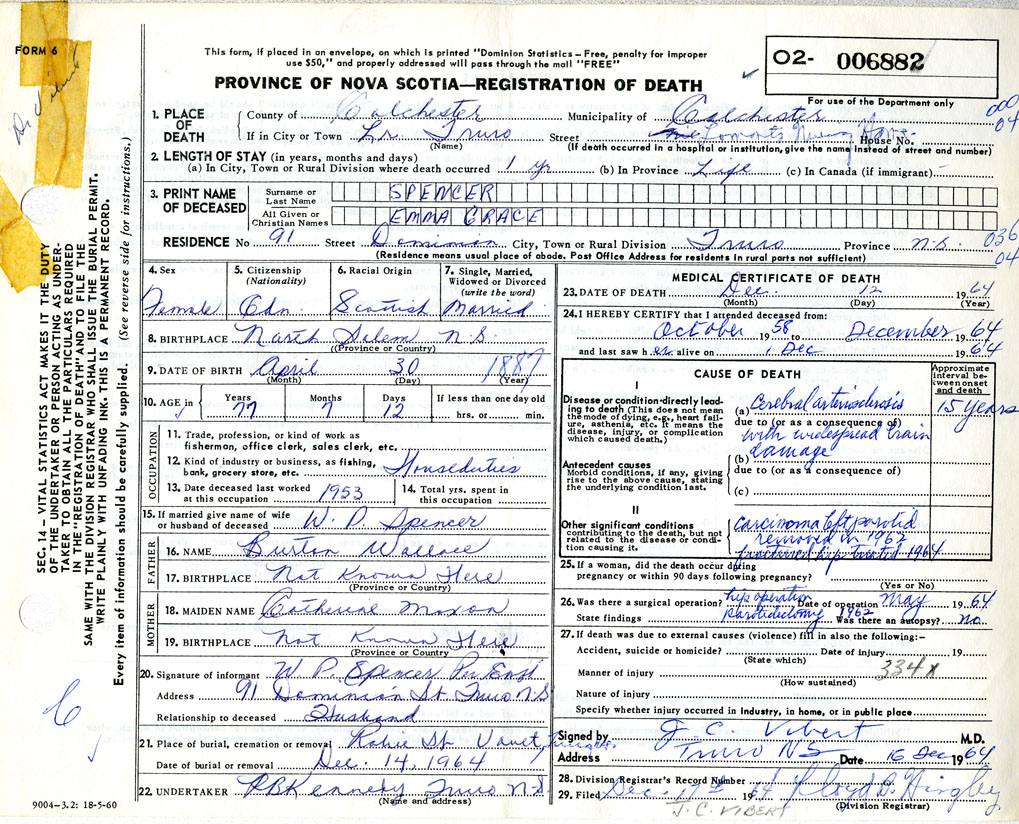 FORM 6
This form, if placed in an envelope, on which is printed "Dominion Statistics – Free, penalty for improper
use $50," and properly addressed will pass through the mail "FREE"
PROVINCE OF NOVA SCOTIA—REGISTRATION OF DEATH
O2- 006882
For use of the Department only
1. PLACE OF DEATH
County of Colchester Municipality of Colchester
000
04
If in City or Town Lr. Truro Street Lamonts Nursing Home House No.
(Name) (If death occurred in a hospital or institution, give the name instead of street and number)
2. LENGTH OF STAY (in years, months and days)
(a) In City, Town or Rural Division where death occurred 1 yr (b) In Province Life (c) In Canada (if immigrant)
3. PRINT NAME OF DECEASED
Surname or Last Name SPENCER
All Given or Christian Names EMMA GRACE
RESIDENCE No 91 Street Dominion City, Town or Rural Division Truro Province N.S.
036
04
(Residence means usual place of abode. Post Office Address for residents in rural parts not sufficient)
4. Sex Female
5. Citizenship (Nationality) Cdn.
6. Racial Origin Scottish
7. Single, Married, Widowed or Divorced (write the word) Married
8. BIRTHPLACE North Salem N S
(Province or Country)
9. DATE OF BIRTH April 30 1887
(Month) (Day) (Year)
10. AGE in Years 77 Months 7 Days 12 If less than one day old hrs. or min.
OCCUPATION
11. Trade, profession, or kind of work as fisherman, office clerk, sales clerk, etc.
12. Kind of industry or business, as fishing, bank, grocery store, etc. Houseduties
13. Date deceased last worked at this occupation 1953
14. Total yrs. spent in this occupation
15. If married give name of wife or husband of deceased W. P. Spencer
FATHER
16. NAME Burton Wallace
17. BIRTHPLACE Not Known Here
(Province or Country)
MOTHER
18. MAIDEN NAME Catherine Moxon
19. BIRTHPLACE Not Known Here
(Province or Country
20. Signature of informant W. P. Spencer Per
Address 91 Dominion St Truro N.S
Relationship to deceased Husband
21. Place of burial, cremation or removal Robie St. Truro N.S.
Date of burial or removal Dec. 14, 1964
22. UNDERTAKER Kennedy Truro N.S.
(Name and address)
MEDICAL CERTIFICATE OF DEATH
23. DATE OF DEATH Dec. 12 1964
(Month) (Day) (Year)
24. I HEREBY CERTIFY that I attended deceased from:
October 1958 to December 1964
and last saw her alive on 1 Dec 1964
CAUSE OF DEATH
Approximate interval between onset and death
I
Disease or condition directly leading to death (This does not mean the mode of dying, e.g., heart failure, asthenia, etc. It means the disease, injury, or complication which caused death.)
(a) Cerebral arteriosclerosis 15 years
due to (or as a consequence of)
with widespread brain
damage
(b)
due to (or as a consequence of)
(c)
Antecedent causes
Morbid conditions, if any, giving rise to the above cause, stating the underlying condition last.
II
Other significant conditions contributing to the death, but not related to the disease or condition causing it.
Carcinoma left parotid
removed in 1962
fractured hip treated 1964
25. If a woman, did the death occur during pregnancy or within 90 days following pregnancy?
(Yes or No)
26. Was there a surgical operation? hip operation Date of operation May 1964
State findings Parotidectomy 1962 Was there an autopsy? No
27. If death was due to external causes (violence) fill in also the following:–
Accident, suicide or homicide? Date of injury 19
(State which)
334x
Manner of injury
(How sustained)
Nature of injury
Specify whether injury occurred in industry, in home, or in public place
Signed by J. C. Vibert M.D.
Address Truro NS Date 16 Dec 1964
28. Division Registrar's Record Number
29. Filed Dec. 17th 1964 Lloyd B. Hingley
(Division Registrar)
J. C. VIBERT
SEC. 14 – VITAL STATISTICS ACT MAKES IT THE DUTY
OF THE UNDERTAKER OR PERSON ACTING AS UNDERTAKER
TO OBTAIN ALL THE PARTICULARS REQUIRED
IN THE "REGISTRATION OF DEATH" AND TO FILE THE
SAME WITH THE DIVISION REGISTRAR WHO SHALL ISSUE THE BURIAL PERMIT.
WRITE PLAINLY WITH UNFADING INK. THIS IS A PERMANENT RECORD.
Every item of information should be carefully supplied. (See reverse side for instructions.)
9004–3.2: 18-5-60